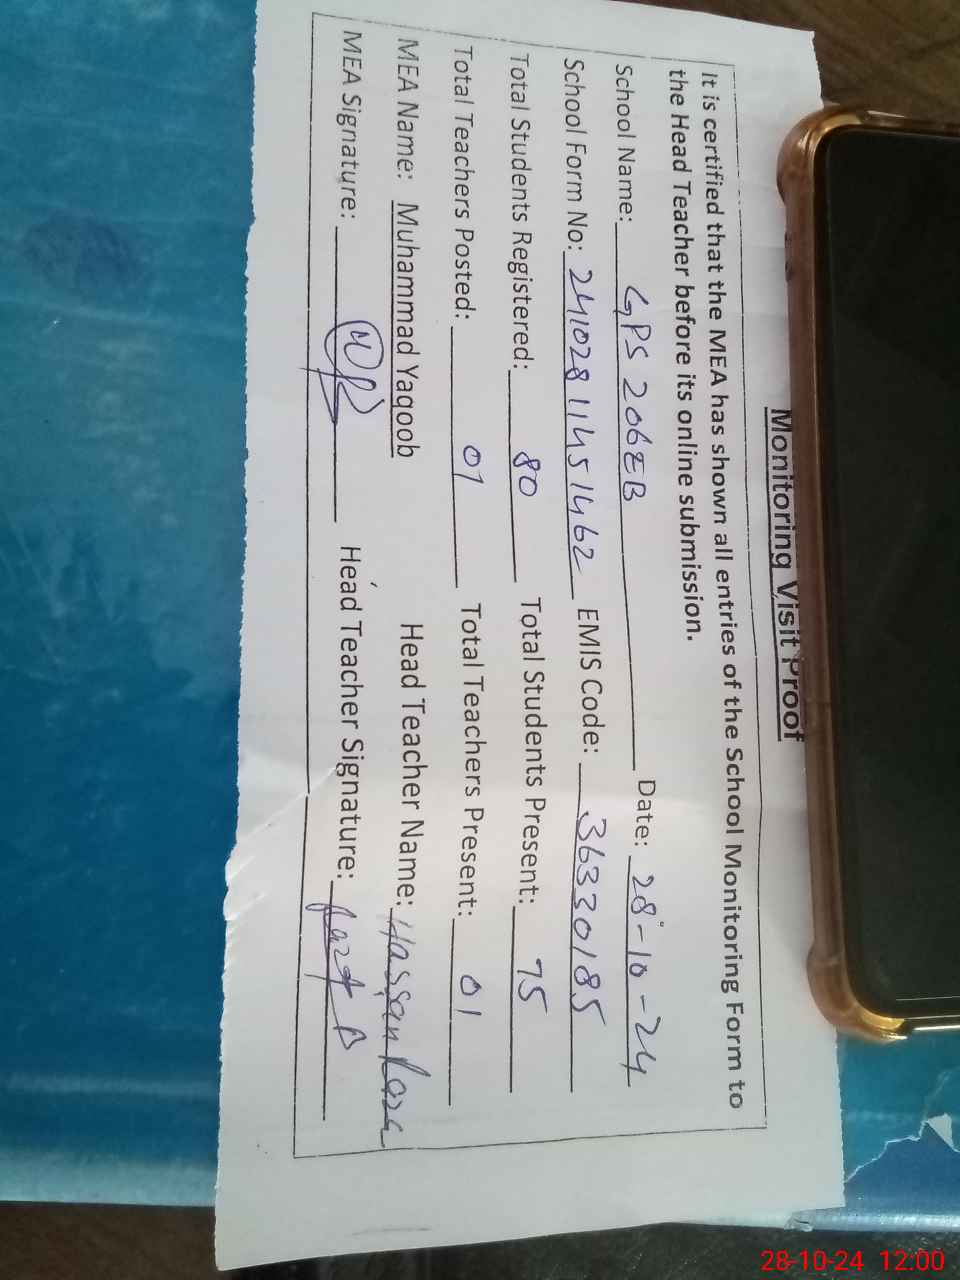 Monitoring Visit Proof
It is certified that the MEA has shown all entries of the School Monitoring Form to
the Head Teacher before its online submission.
School Name: GPS 206EB Date: 28-10-24
School Form No: 24102811451462 EMIS Code: 36330185
Total Students Registered: 80 Total Students Present: 75
Total Teachers Posted: 01 Total Teachers Present: 01
MEA Name: Muhammad Yaqoob Head Teacher Name: Hassan Raza
MEA Signature: Head Teacher Signature:
28-10-24 12:00